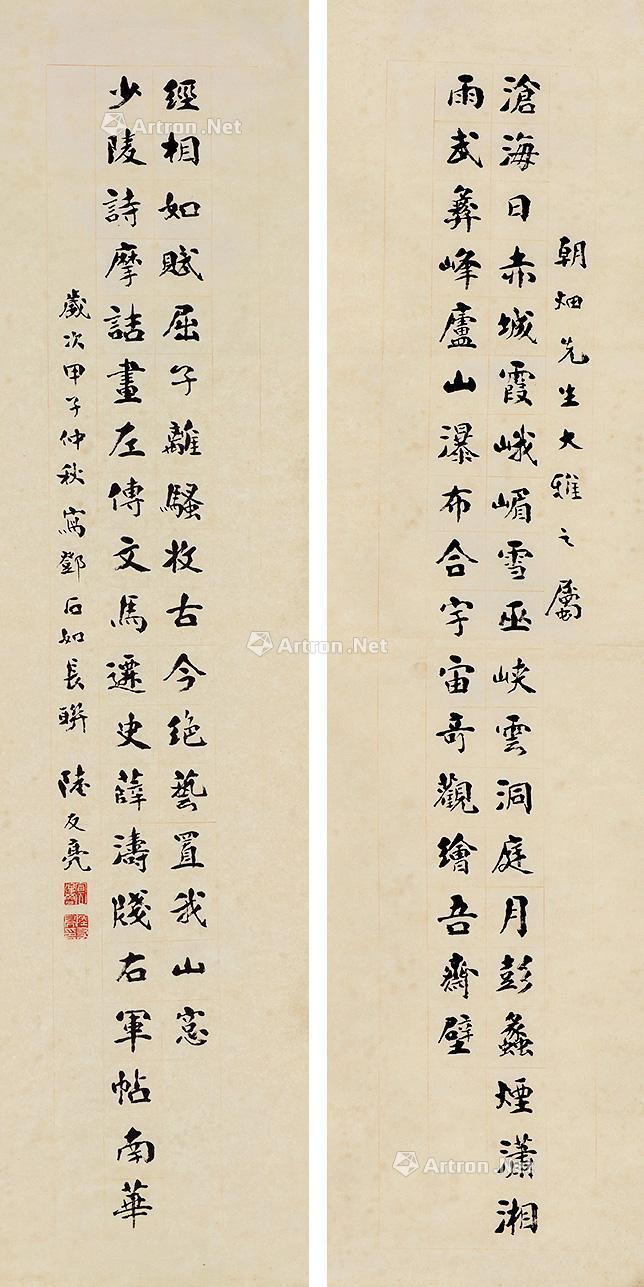 朝畑先生大雅之屬
滄海日赤城霞峨嵋雪巫峽雲洞庭月彭蠡煙瀟湘
雨武彝峰廬山瀑布合宇宙奇觀繪吾齋壁
少陵詩摩詰畫左傳文馬遷史薛濤牋右軍帖南華
經相如賦屈子離騷收古今絕藝置我山窓
歲次甲子仲秋寫鄧石如長聯 陸友亮
Artron.Net
Artron.Net
Artron.Net